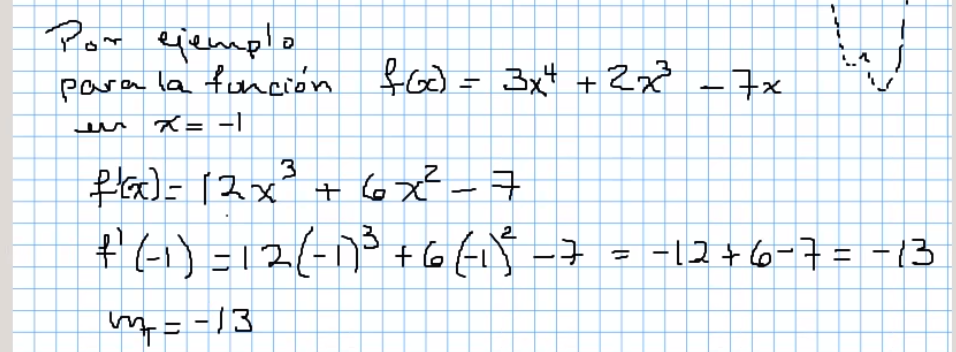 Por ejemplo
para la función f(x) = 3x⁴ + 2x³ - 7x
en x = -1
f'(x) = 12x³ + 6x² - 7
f'(-1) = 12(-1)³ + 6(-1)² - 7 = -12 + 6 - 7 = -13
m_T = -13